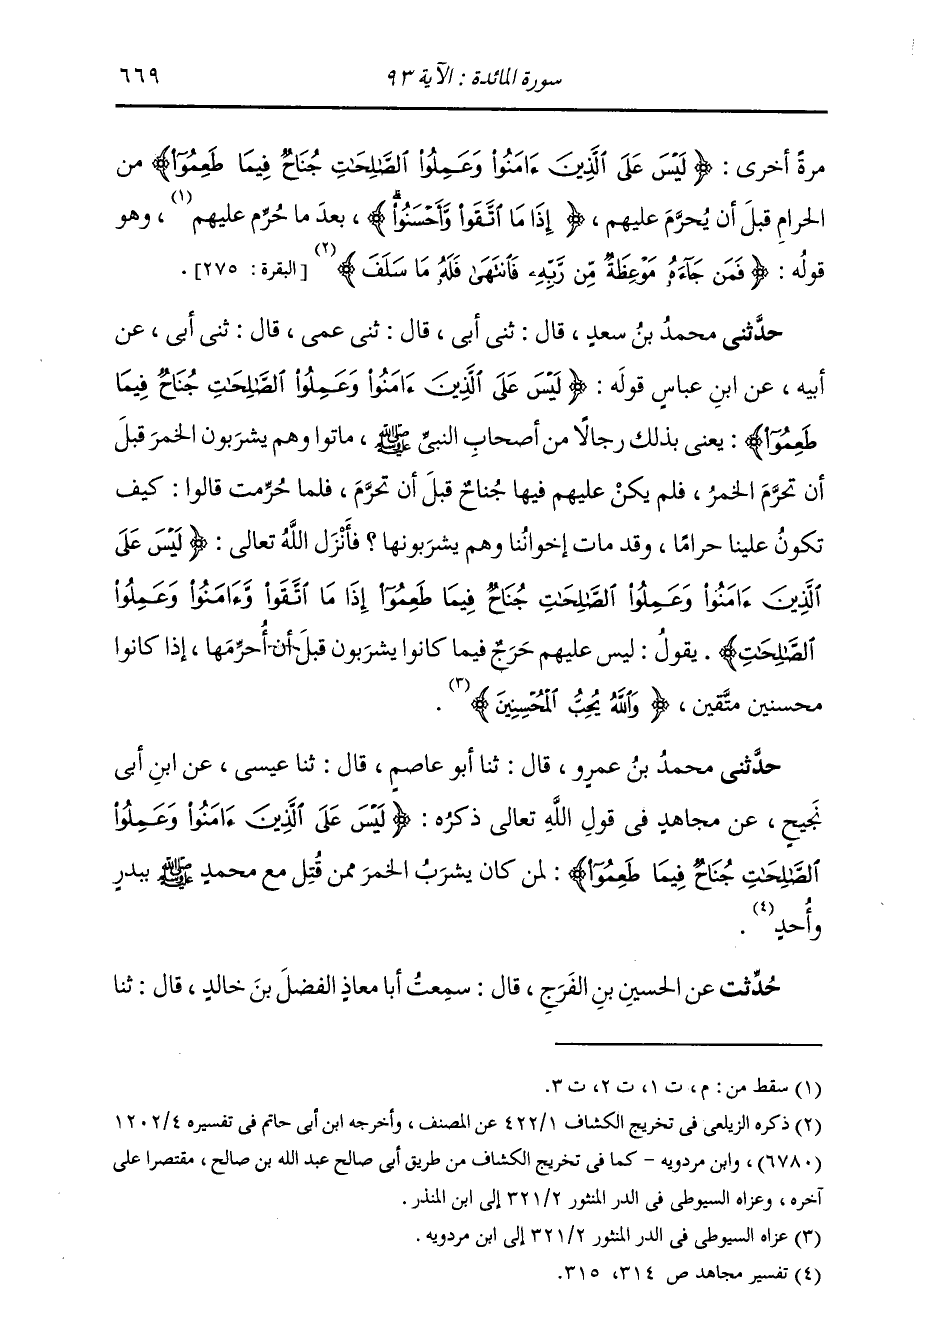 سورة المائدة : الآية ٩٣ ٦٦٩
مرةً أخرى : ﴿ لَيْسَ عَلَى ٱلَّذِينَ ءَامَنُوا۟ وَعَمِلُوا۟ ٱلصَّٰلِحَٰتِ جُنَاحٌ فِيمَا طَعِمُوٓا۟﴾ من
الحرامِ قبلَ أن يُحرَّمَ عليهم ، ﴿ إِذَا مَا ٱتَّقَوا۟ وَّأَحْسَنُوا۟ۚ﴾ ، بعدَ ما حُرِّم عليهم(١) ، وهو
قولُه : ﴿ فَمَن جَآءَهُۥ مَوْعِظَةٌ مِّن رَّبِّهِۦ فَٱنتَهَىٰ فَلَهُۥ مَا سَلَفَ ﴾(٢) [البقرة : ٢٧٥] .
حدَّثنى محمدُ بنُ سعدٍ ، قال : ثنى أبى ، قال : ثنى عمى ، قال : ثنى أبى ، عن
أبيه ، عن ابنِ عباسٍ قولَه : ﴿ لَيْسَ عَلَى ٱلَّذِينَ ءَامَنُوا۟ وَعَمِلُوا۟ ٱلصَّٰلِحَٰتِ جُنَاحٌ فِيمَا
طَعِمُوٓا۟﴾ : يعنى بذلك رجالًا من أصحابِ النبىِّ ﷺ ، ماتوا وهم يشرَبون الخمرَ قبلَ
أن تحرَّمَ الخمرُ ، فلم يكنْ عليهم فيها جُناحٌ قبلَ أن تحرَّمَ ، فلما حُرِّمت قالوا : كيف
تكونُ علينا حرامًا ، وقد مات إخوانُنا وهم يشرَبونها ؟ فأَنْزَل اللَّهُ تعالى : ﴿ لَيْسَ عَلَى
ٱلَّذِينَ ءَامَنُوا۟ وَعَمِلُوا۟ ٱلصَّٰلِحَٰتِ جُنَاحٌ فِيمَا طَعِمُوٓا۟ إِذَا مَا ٱتَّقَوا۟ وَّءَامَنُوا۟ وَعَمِلُوا۟
ٱلصَّٰلِحَٰتِ﴾ . يقولُ : ليس عليهم حَرَجٌ فيما كانوا يشرَبون قبلَ أن أُحرِّمَها ، إذا كانوا
محسنين متَّقين ، ﴿ وَٱللَّهُ يُحِبُّ ٱلْمُحْسِنِينَ ﴾(٣) .
حدَّثنى محمدُ بنُ عمرٍو ، قال : ثنا أبو عاصمٍ ، قال : ثنا عيسى ، عن ابنِ أبى
نَجيحٍ ، عن مجاهدٍ فى قولِ اللَّهِ تعالى ذكرُه : ﴿ لَيْسَ عَلَى ٱلَّذِينَ ءَامَنُوا۟ وَعَمِلُوا۟
ٱلصَّٰلِحَٰتِ جُنَاحٌ فِيمَا طَعِمُوٓا۟﴾ : لمن كان يشرَبُ الخمرَ ممن قُتِل مع محمدٍ ﷺ ببدرٍ
وأُحدٍ(٤) .
حُدِّثت عن الحسينِ بنِ الفَرَجِ ، قال : سمِعتُ أبا معاذٍ الفضلَ بنَ خالدٍ ، قال : ثنا
(١) سقط من : م، ت ١، ت ٢، ت ٣.
(٢) ذكره الزيلعى فى تخريج الكشاف ٤٢٢/١ عن المصنف ، وأخرجه ابن أبى حاتم فى تفسيره ١٢٠٢/٤
(٦٧٨٠) ، وابن مردويه – كما فى تخريج الكشاف من طريق أبى صالح عبد الله بن صالح ، مقتصرا على
آخره ، وعزاه السيوطى فى الدر المنثور ٣٢١/٢ إلى ابن المنذر .
(٣) عزاه السيوطى فى الدر المنثور ٣٢١/٢ إلى ابن مردويه .
(٤) تفسير مجاهد ص ٣١٤، ٣١٥.